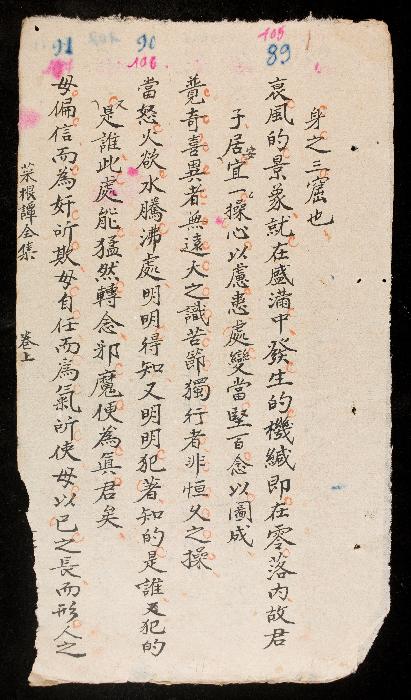 109
89
身之三窟也
衰風的景象就在盛滿中發生的機緘即在零落內故君
子居宜一操心以慮患處變當堅百忍以圖成
安
106
90
驚奇喜異者無遠大之識苦節獨行者非恒久之操
當怒火欲水騰沸處明明得知又明明犯著知的是誰又犯的
又
是誰此處能猛然轉念邪魔便為真君矣
91
毋偏信而為奸所欺毋自任而為氣所使毋以已之長而形人之
菜根譚全集 卷上